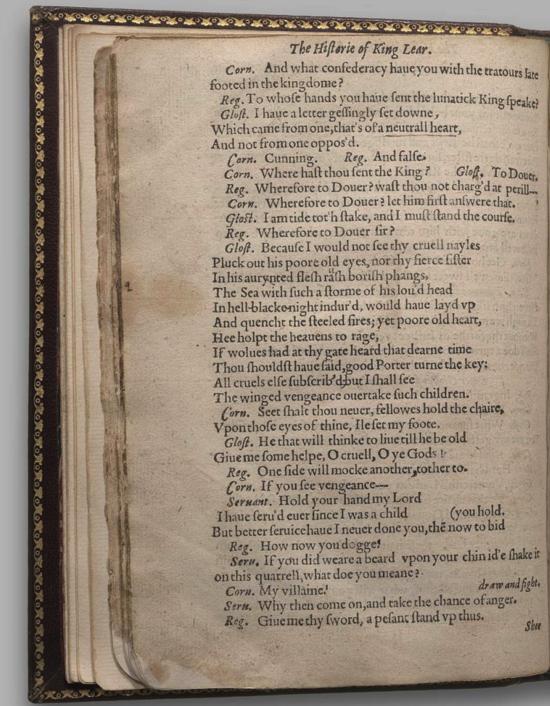 The Historie of King Lear.
Corn. And what confederacy haue you with the tratours late
footed in the kingdome?
Reg. To whose hands you haue sent the lunatick King speake?
Glost. I haue a letter gessingly set downe,
Which came from one, that's of a neutrall heart,
And not from one oppos'd.
Corn. Cunning. Reg. And false.
Corn. Where hast thou sent the King? Glost. To Douer.
Reg. Wherefore to Douer? wast thou not charg'd at perill—
Corn. Wherefore to Douer? let him first answere that.
Glost. I am tide tot'h stake, and I must stand the course.
Reg. Wherefore to Douer sir?
Glost. Because I would not see thy cruell nayles
Pluck out his poore old eyes, nor thy fierce sister
In his aurynted flesh rash borish phangs,
The Sea with such a storme of his lou'd head
In hell-blacke-night indur'd, would haue layd vp
And quencht the steeled fires; yet poore old heart,
Hee holpt the heauens to rage,
If wolues had at thy gate heard that dearne time
Thou shouldst haue said, good Porter turne the key:
All cruels else subscrib'd, but I shall see
The winged vengeance ouertake such children.
Corn. Seet shalt thou neuer, fellowes hold the chaire,
Vpon those eyes of thine, Ile set my foote.
Glost. He that will thinke to liue till he be old
Giue me some helpe, O cruell, O ye Gods!
Reg. One side will mocke another, tother to.
Corn. If you see vengeance—
Seruant. Hold your hand my Lord
I haue seru'd euer since I was a child (you hold.
But better seruice haue I neuer done you, thẽ now to bid
Reg. How now you dogge!
Seru. If you did weare a beard vpon your chin id'e shake it
on this quatrell, what doe you meane?
Corn. My villaine! draw and fight.
Seru. Why then come on, and take the chance of anger.
Reg. Giue me thy sword, a pesant stand vp thus.
Shee